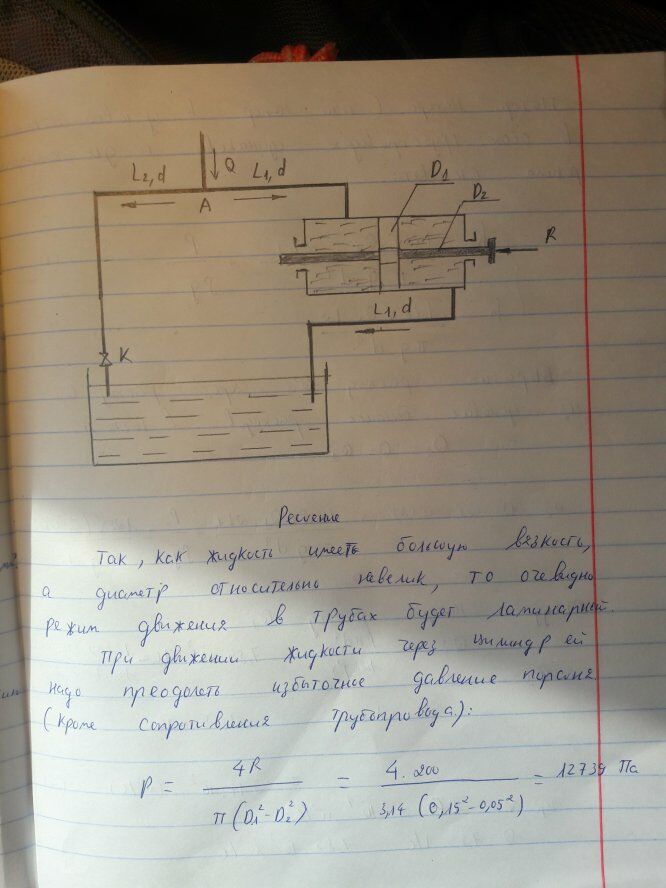 Q
L2, d
L1, d
A
D1
D2
R
L1, d
K
Решение
Так, как жидкость имеет большую вязкость,
а диаметр относительно невелик, то очевидно
режим движения в трубах будет ламинарный.
При движении жидкости через цилиндр ей
надо преодолеть избыточное давление поршня
(кроме сопротивления трубопровода):
P = 4R / π(D1² - D2²) = 4·200 / 3,14 (0,15² - 0,05²) = 12739 Па